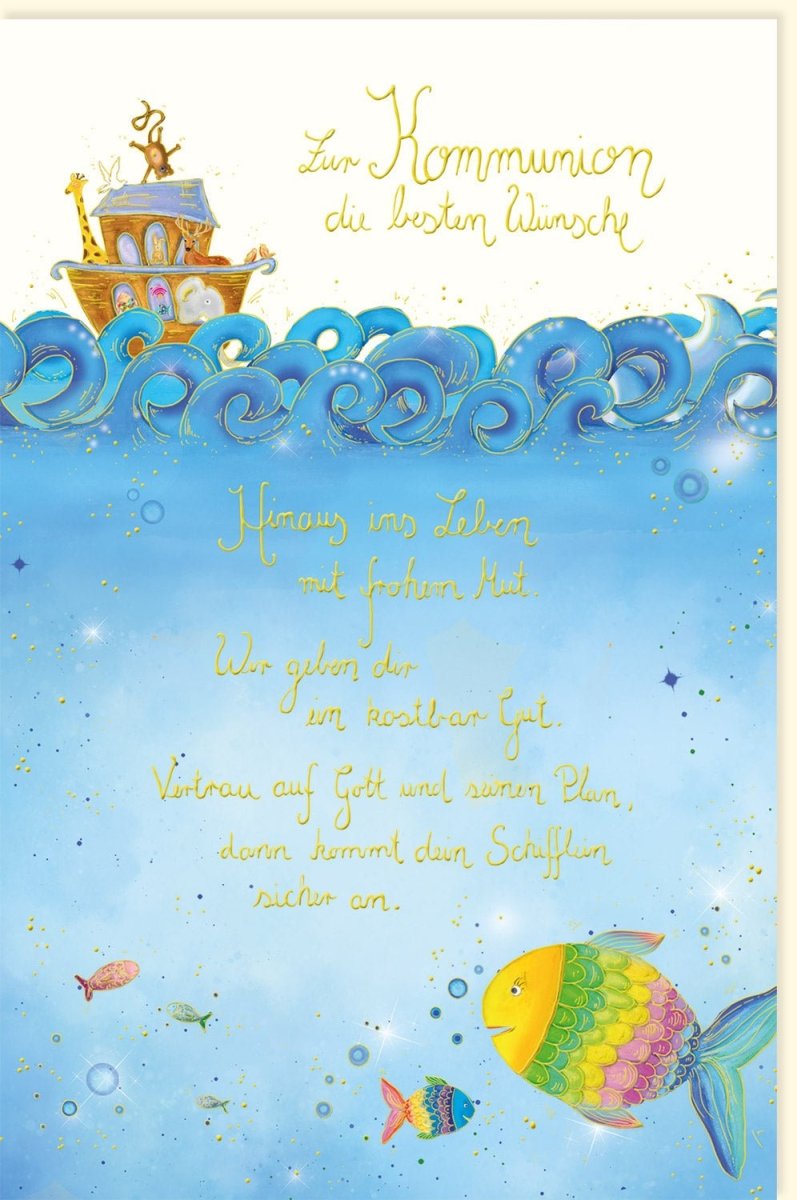 Zur Kommunion
die besten Wünsche
Hinaus ins Leben
mit frohem Mut.
Wir geben dir
ein kostbar Gut.
Vertrau auf Gott und seinen Plan,
dann kommt dein Schifflein
sicher an.